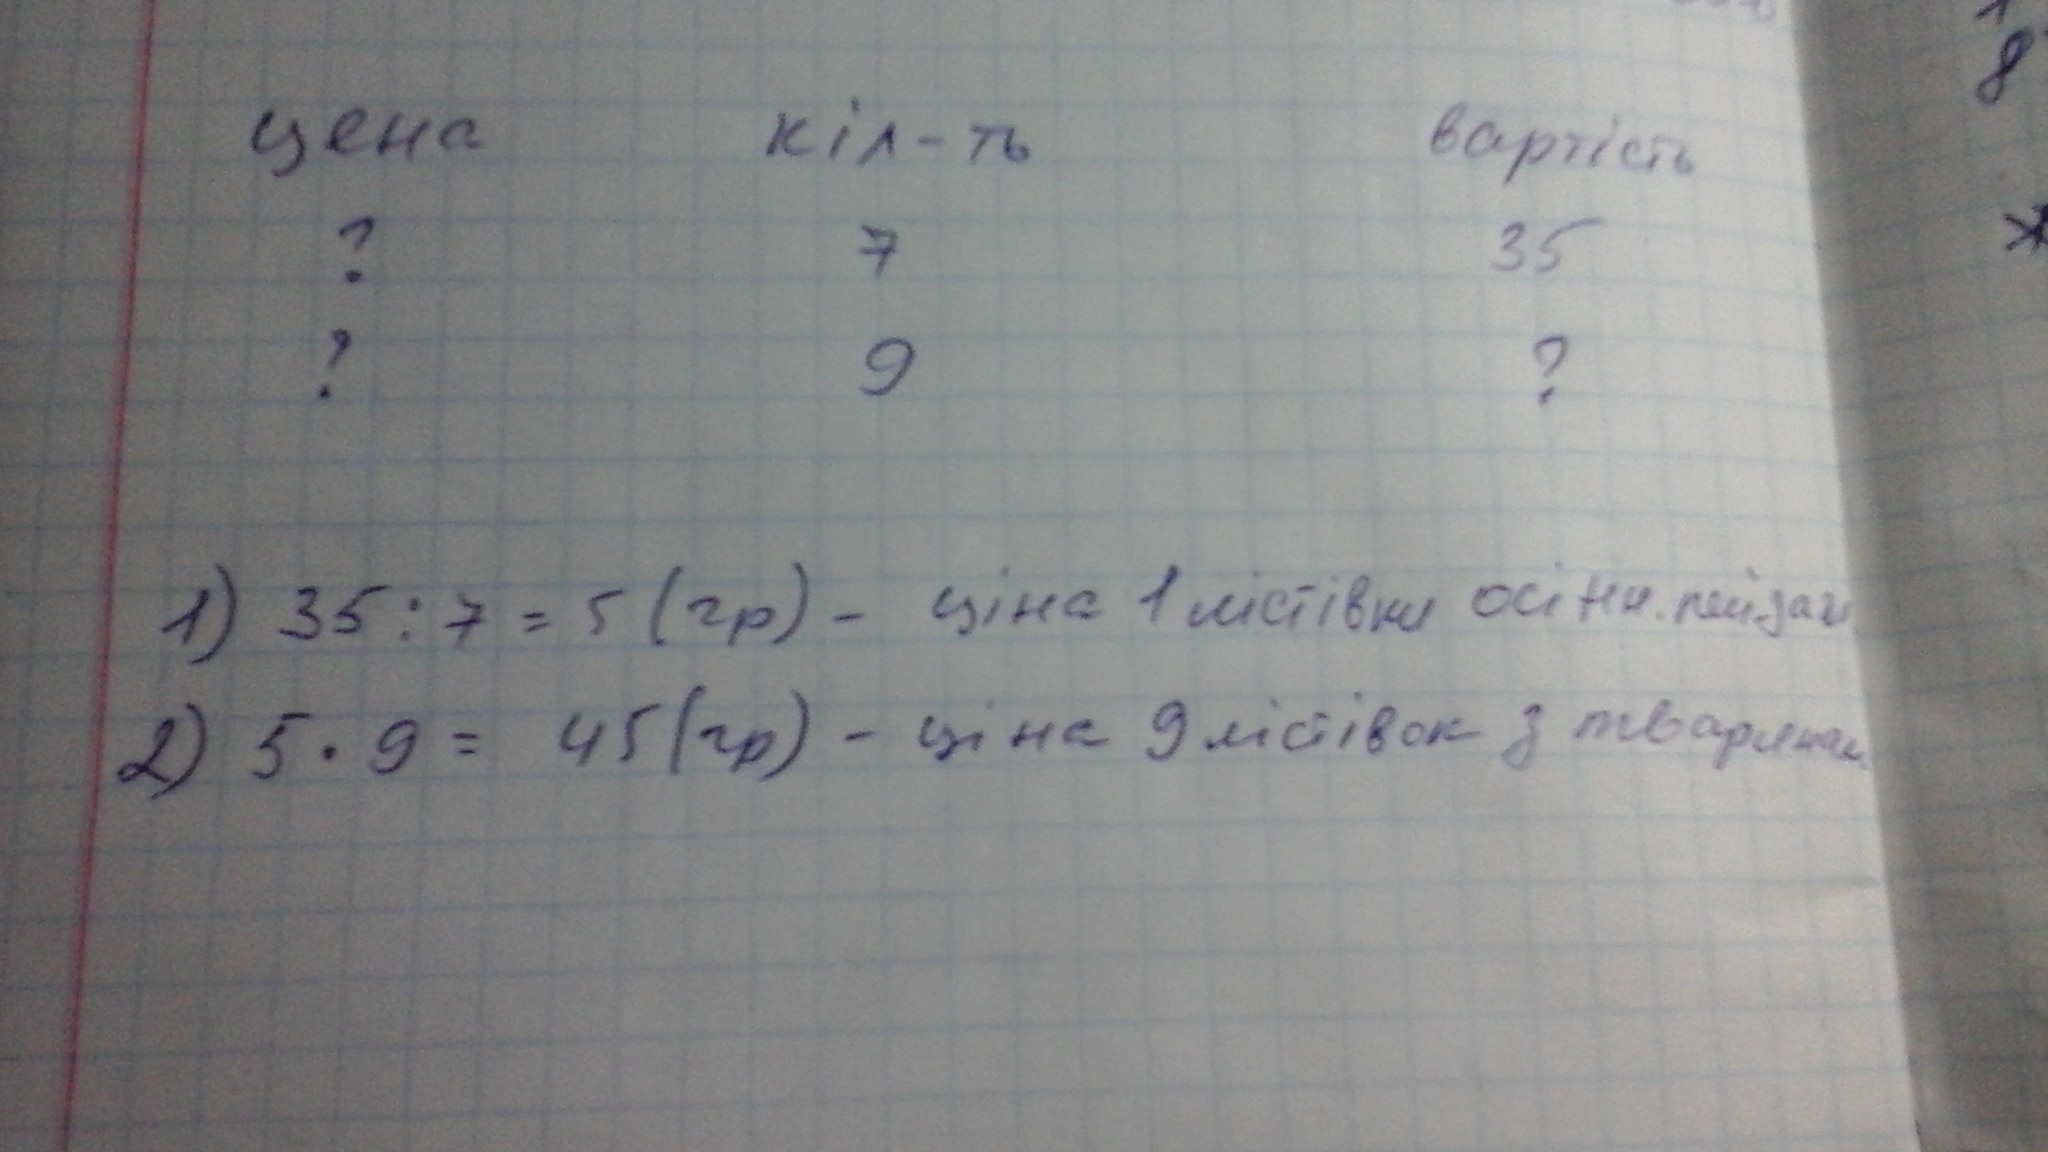 цена кіл-ть вартість
? 7 35
? 9 ?
1) 35:7=5(гр)- ціна 1 лістівки осінн. пейзаж
2) 5·9= 45(гр)- ціна 9 лістівок з тваринам
8